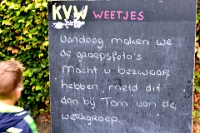 KVW WEETJES
Vandaag maken we
de groepsfoto's
Mocht u bezwaar
hebben, meld dit
dan bij Tom van de
werkgroep.